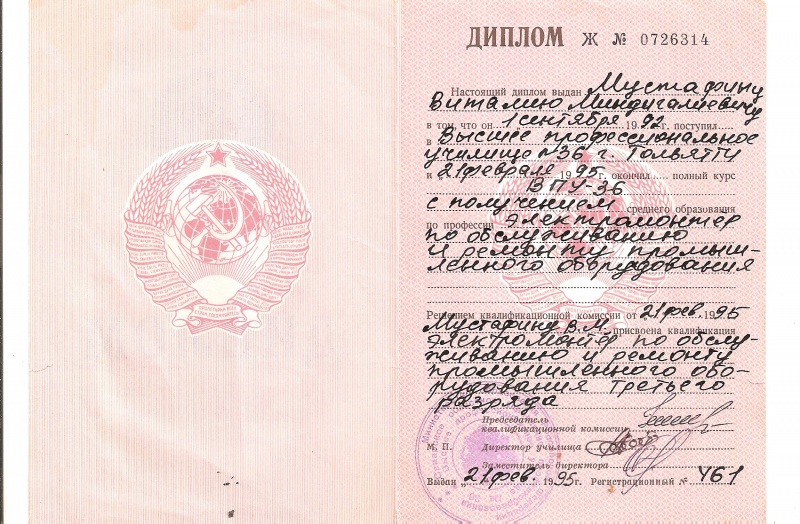 ДИПЛОМ Ж № 0726314
Настоящий диплом выдан Мустафину
Виталию Миндигалиевичу
в том, что он 1 сентября 1992 поступил
в Высшее профессиональное
училище №36 г. Тольятти
и 21 февраля 1995 окончил полный курс
ВПУ-36
с получением среднего образования
по профессии электромонтер
по обслуживанию
и ремонту промыш-
ленного оборудования
Решением квалификационной комиссии от 21 фев. 1995
Мустафину В.М. присвоена квалификация
электромонтер по обслу-
живанию и ремонту
промышленного обо-
рудования третьего
разряда
Председатель
квалификационной комиссии
М. П. Директор училища
Заместитель директора
Выдан 21 фев. 1995г. Регистрационный № 461